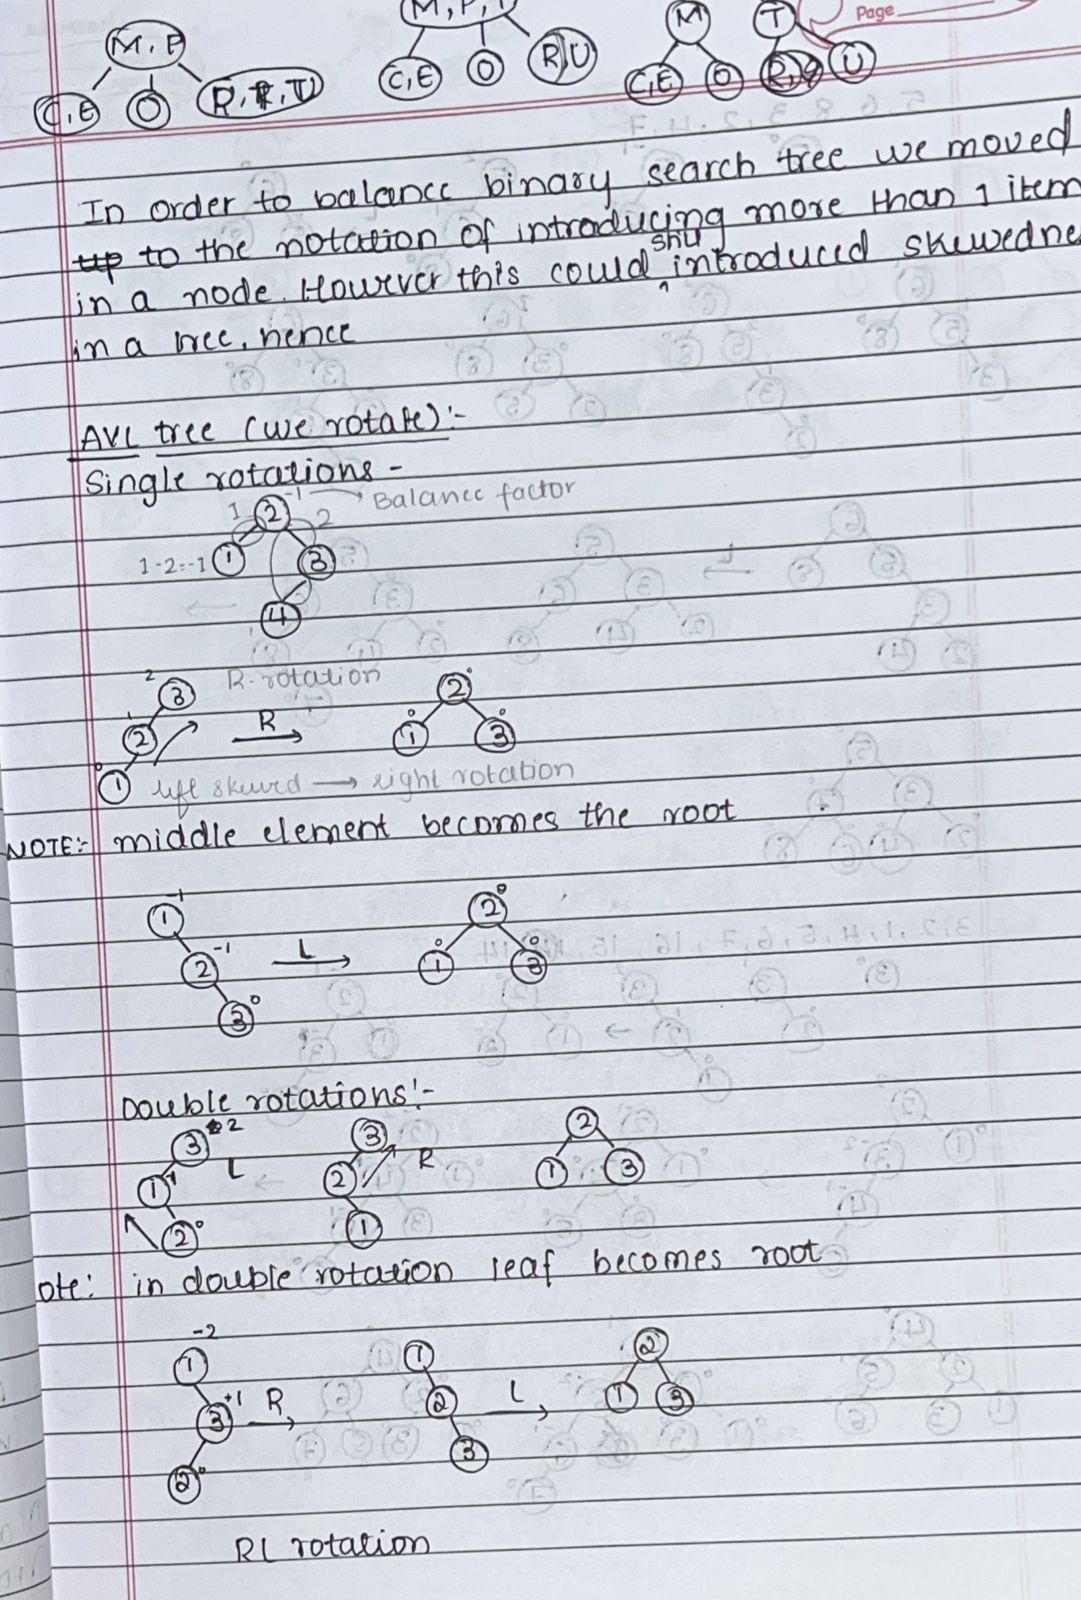 Page
M, P
C, E O R, R, T, U
M, P, T
C, E O R, U
M T
C, E O U
In order to balance binary search tree we moved
up to the notation of introducing more than 1 item
in a node. However this could still introduced skewedne
in a tree, hence
AVL tree (we rotate):-
Single rotations -
1 2 -1 → Balance factor
2
1-2=-1 1 3
4
2 3 R-rotation 2 0
1 2 R → 0 1 0 3
0 1 left skewed → right rotation
NOTE:- middle element becomes the root
1 -1 2 0
2 -1 L → 0 1 0 3
3 0
Double rotations:-
3 2 L 3 R 2
1 2 1 3
2 0 1
ote: in double rotation leaf becomes root
-2
1 1 2
3 +1 R → 2 L → 1 3
2 0 3
RL rotation